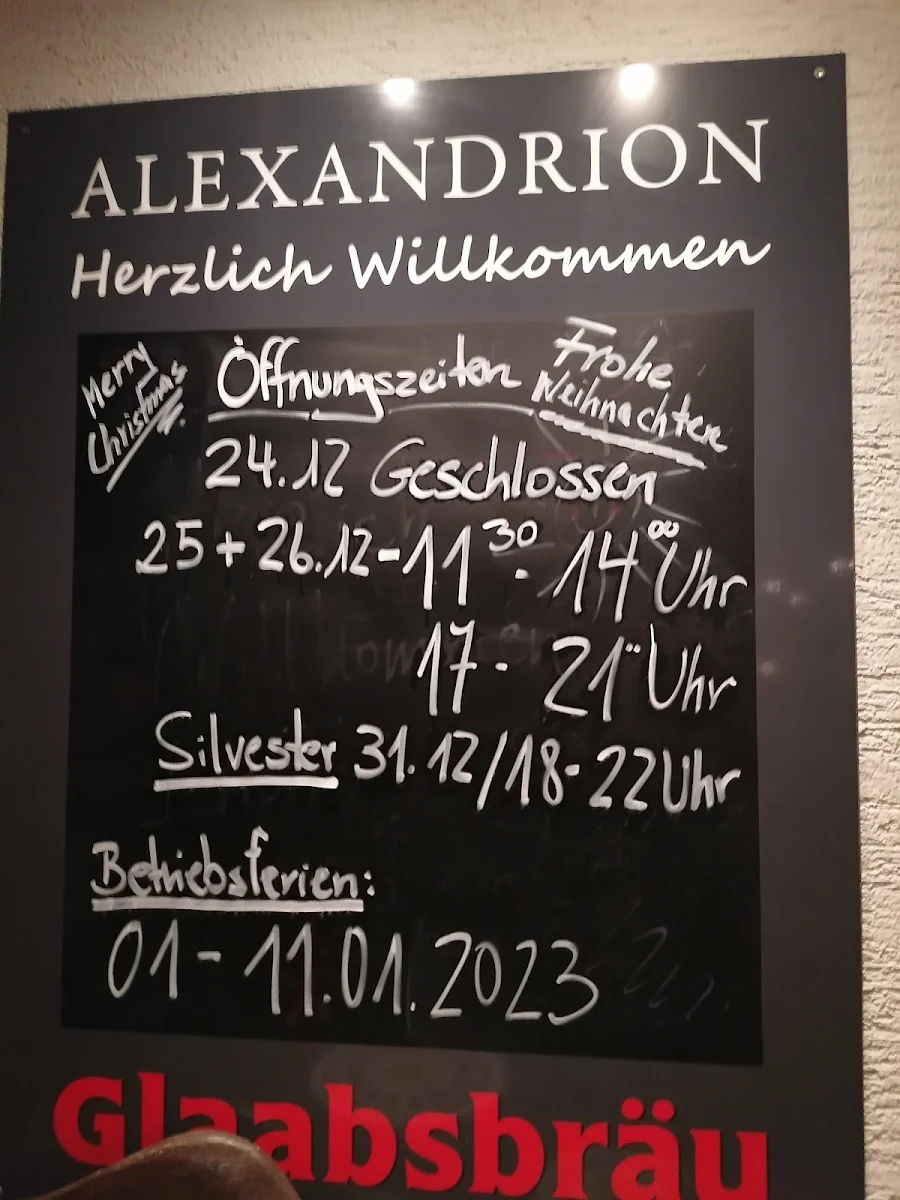 ALEXANDRION
Herzlich Willkommen
Merry
Christmas
Öffnungszeiten
Frohe
Weihnachten
24.12 Geschlossen
25+26.12-11³⁰ - 14⁰⁰ Uhr
17 - 21°° Uhr
Silvester 31.12/18-22 Uhr
Betriebsferien:
01-11.01.2023
Glaabsbräu